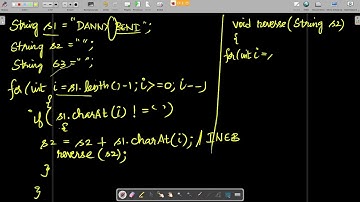 String s1 = "DANNY BENI";
String s2 = " ";
String s3 = " ";
for(int i = s1.length()-1; i>=0; i--)
{
if( s1.charAt(i) != ' ')
{
s2 = s2 + s1.charAt(i); // INEB
reverse(s2);
}
}
void reverse(String s2)
{
for(int i = ,